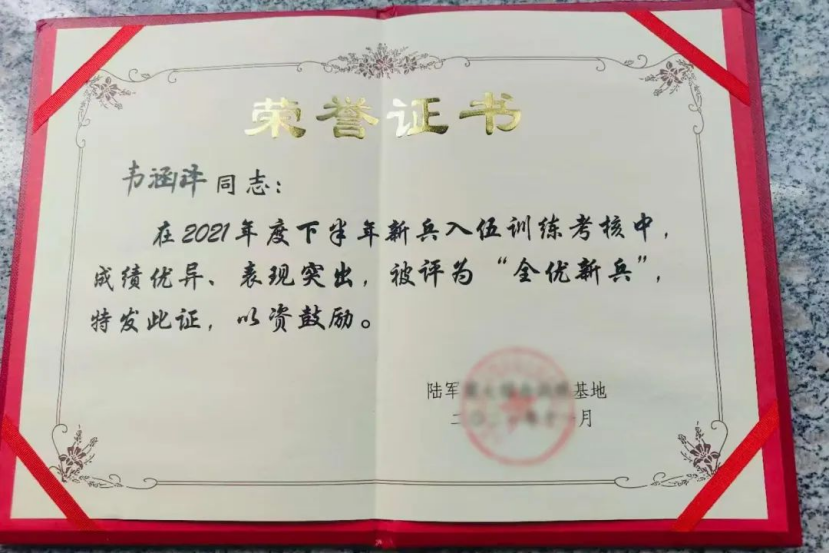 荣誉证书
韦涵译同志：
在2021年度下半年新兵入伍训练考核中，
成绩优异、表现突出，被评为“全优新兵”，
特发此证，以资鼓励。
陆军 基地
二〇二 年十一月